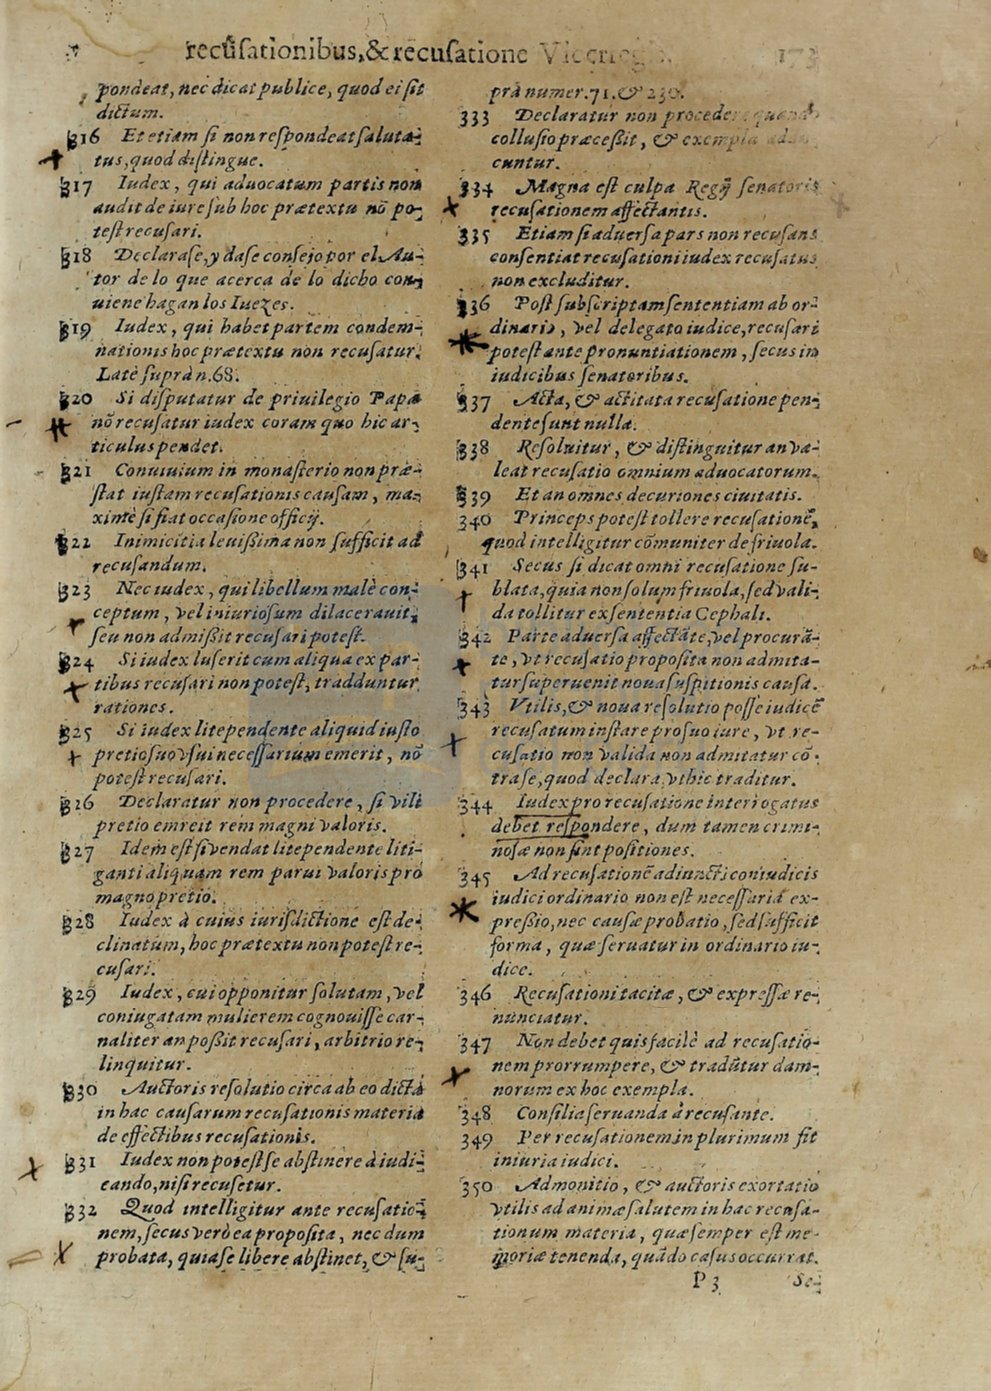 recusationibus, & recusatione Viceregis. 173
pondeat, nec dicat publice, quod ei sit
dictum.
316 Et etiam si non respondeat saluta-
tus, quod distingue.
317 Iudex, qui aduocatum partis non
audit de iure sub hoc prætextu nõ po-
test recusari.
318 Declarase, y dase consejo por el Au-
tor de lo que acerca de lo dicho con-
uiene hagan los Iuezes.
319 Iudex, qui habet partem condem-
nationis hoc prætextu non recusatur.
Latè suprà n.68.
320 Si disputatur de priuilegio Papæ
nõ recusatur iudex coram quo hic ar-
ticulus pendet.
321 Conuiuium in monasterio non præ-
stat iustam recusationis causam, ma-
ximè si fiat occasione officij.
322 Inimicitia leuißima non sufficit ad
recusandum.
323 Nec iudex, qui libellum malè con-
ceptum, vel iniuriosum dilacerauit,
seu non admißit recusari potest.
324 Si iudex luserit cum aliqua ex par-
tibus recusari non potest, tradduntur
rationes.
325 Si iudex lite pendente aliquid iusto
pretio suo vsui necessarium emerit, nõ
potest recusari.
326 Declaratur non procedere, si vili
pretio emreit rem magni valoris.
327 Idem est si vendat lite pendente liti-
ganti aliquam rem parui valoris pro
magno pretio.
328 Iudex à cuius iurisdictione est de-
clinatum, hoc prætextu non potest re-
cusari.
329 Iudex, cui opponitur solutam, vel
coniugatam mulierem cognouisse car-
naliter an poßit recusari, arbitrio re-
linquitur.
330 Auctoris resolutio circa ab eo dicta
in hac causarum recusationis materia
de effectibus recusationis.
331 Iudex non potest se abstinere à iudi-
eando, nisi recusetur.
332 Quod intelligitur ante recusatio-
nem, secus verò ea proposita, nec dum
probata, quia se libere abstinet, & su-
prà numer.71. & 230.
333 Declaratur non procedere quando
collusio præceßit, & exempla addu-
cuntur.
334 Magna est culpa Regij senatoris
recusationem affectantis.
335 Etiam si aduersa pars non recusans
consentiat recusationi iudex recusatus
non excluditur.
336 Post subscriptam sententiam ab or-
dinario, vel delegato iudice, recusari
potest ante pronuntiationem, secus in
iudicibus senatoribus.
337 Acta, & actitata recusatione pen-
dente sunt nulla.
338 Resoluitur, & distinguitur an va-
leat recusatio omnium aduocatorum.
339 Et an omnes decuriones ciuitatis.
340 Princeps potest tollere recusationẽ,
quod intelligitur cõmuniter de friuola.
341 Secus si dicat omni recusatione su-
blata, quia non solum friuola, sed vali-
da tollitur ex sententia Cephali.
342 Parte aduersa affectãte, vel procurã-
te, vt recusatio proposita non admita-
tur superuenit noua suspitionis causa.
343 Vtilis, & noua resolutio posse iudicẽ
recusatum instare pro suo iure, vt re-
cusatio non valida non admitatur cõ-
tra se, quod declara, vt hic traditur.
344 Iudex pro recusatione interrogatus
debet respondere, dum tamen crimi-
nosæ non sint positiones.
345 Ad recusationẽ adiuncti coniudicis
iudici ordinario non est necessaria ex-
preßio, nec causæ probatio, sed sufficit
forma, quæ seruatur in ordinario iu-
dice.
346 Recusationi tacitæ, & expressæ re-
nunciatur.
347 Non debet quis facilè ad recusatio-
nem prorrumpere, & tradũtur dam-
norum ex hoc exempla.
348 Consilia seruanda à recusante.
349 Per recusationem in plurimum fit
iniuria iudici.
350 Admonitio, & auctoris exortatio
vtilis ad animæ salutem in hac recusa-
tionum materia, quæ semper est me-
moriæ tenenda, quãdo casus occurrat.
P 3 Se-